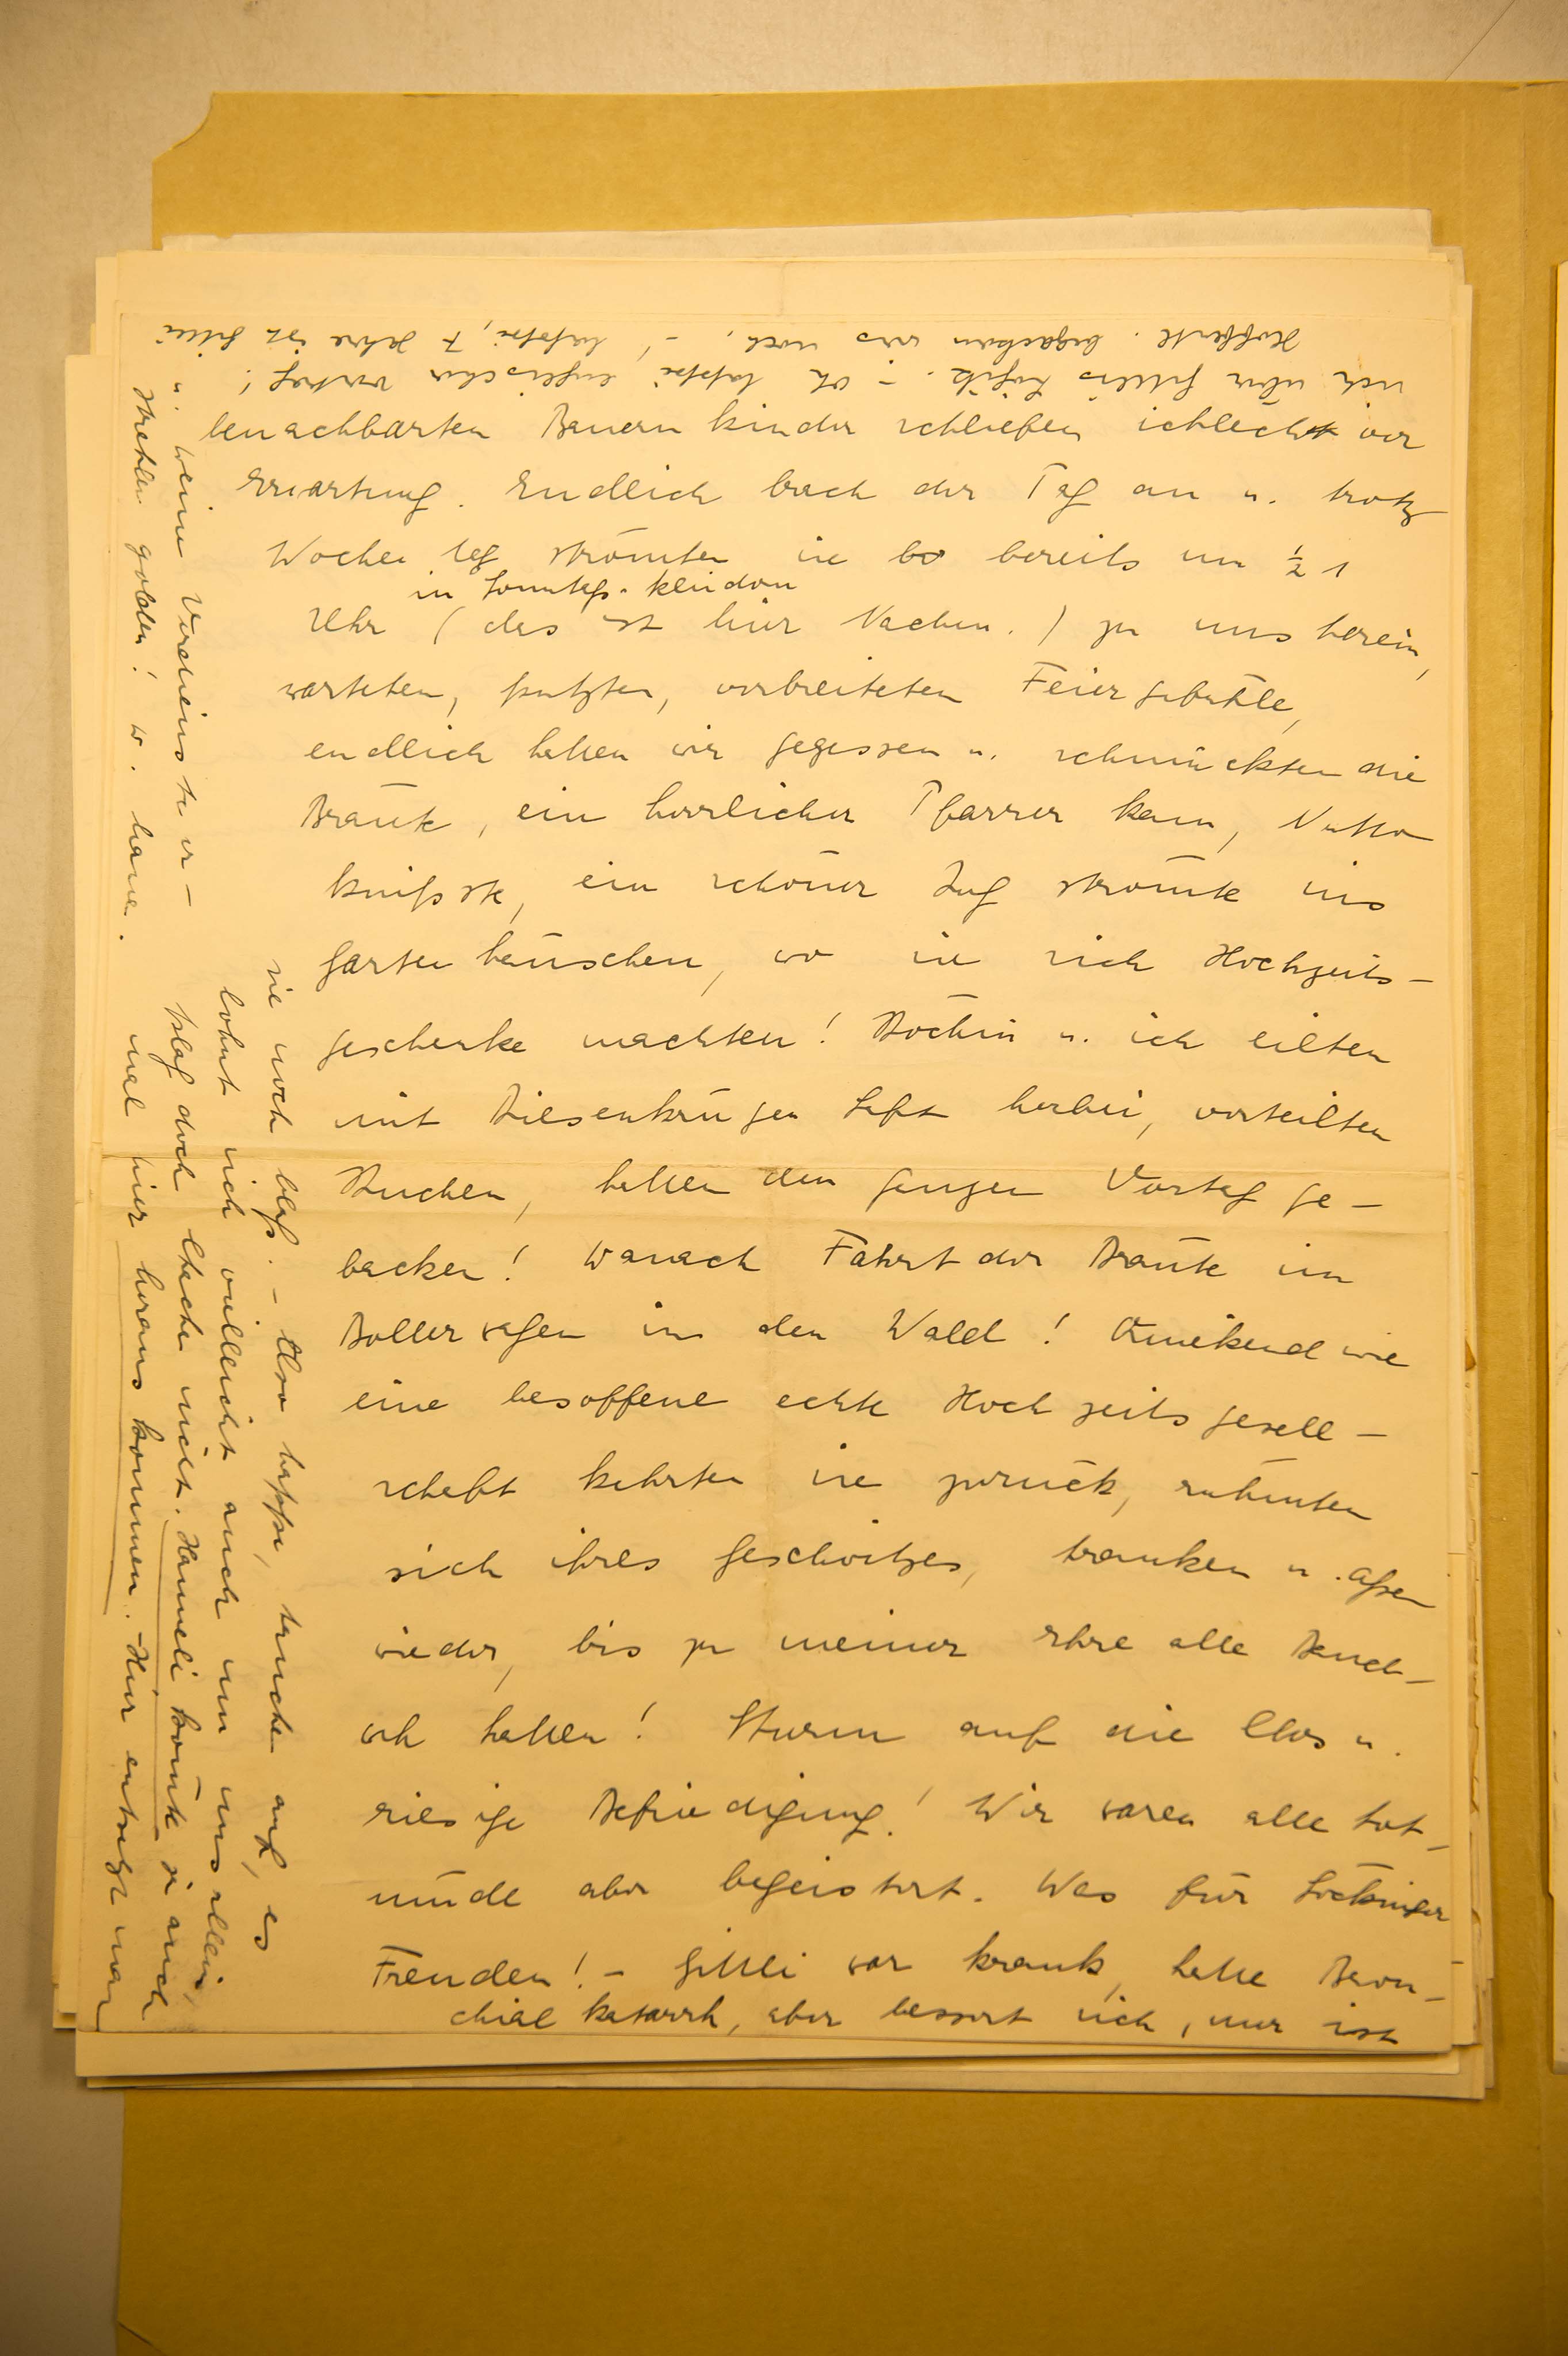 benachbarten Bauernkinder schliefen schlecht vor
Erwartung. Endlich brach der Tag an u. trotz
Wochentag strömten sie bereits um ½ 1
in Sonntags-kleidern
Uhr (das ist hier Nachm.) zu uns herein,
warteten, putzten, verbreiteten Feiergefühle,
endlich hatten wir gegessen u. schmückten die
Bräute, ein herrlicher Pfarrer kam,
knipste, ein schöner Zug strömte ins
Gartenhäuschen, wo sie sich Hochzeits-
geschenke machten! Köchin u. ich eilten
mit Riesenkrügen Saft herbei, verteilten
Kuchen, hatten den ganzen Vortag ge-
backen! Danach Fahrt der Bräute im
Bollerwagen in den Wald! Quiekend wie
eine besoffene echte Hochzeitsgesell-
schaft kehrten sie zurück, rühmten
sich ihres Geschwitzes, tranken u. aßen
wieder, bis zu meiner Ehre alle Bauch-
weh hatten! Sturm auf die Clos u.
riesige Befriedigung! Wir waren alle tot-
müde aber begeistert. Was für
Freuden! – Gitti war krank, hatte Bron-
chialkatarrh, aber bessert sich, nur ist
sie noch blaß. – Also Pappi, tauche auf, es
lohnt sich vielleicht auch um uns allein,
plag doch nicht. Hanneli könnte ja auch
mal hier heraus kommen. – Hier entsetzt man
sich über Gittis Logik. –
u. weine Verdienste er –
strahlen golden!